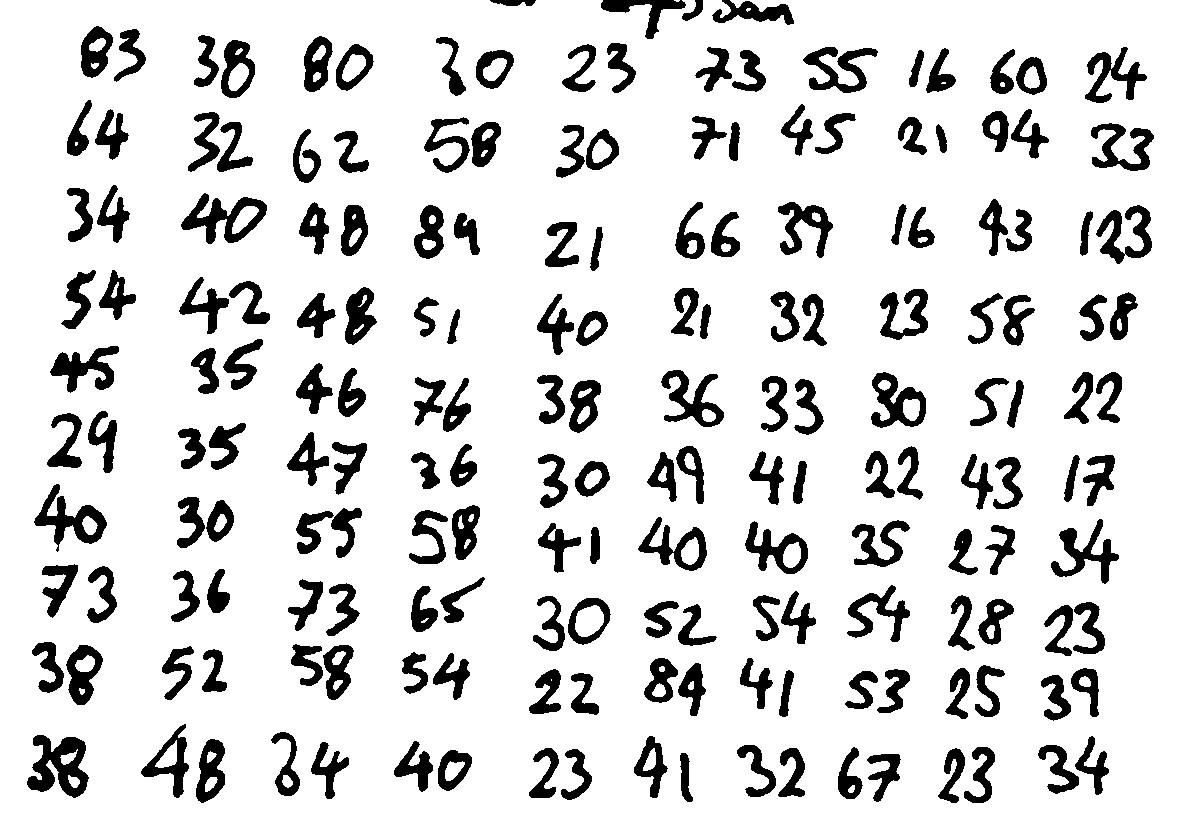 83 38 80 30 23 73 55 16 60 24
64 32 62 58 30 71 45 21 94 33
34 40 48 84 21 66 39 16 43 123
54 42 48 51 40 21 32 23 58 58
45 35 46 76 38 36 33 30 51 22
29 35 47 36 30 49 41 22 43 17
40 30 55 58 41 40 40 35 27 34
73 36 73 65 30 52 54 54 28 23
38 52 58 54 22 84 41 53 25 39
38 48 34 40 23 41 32 67 23 34